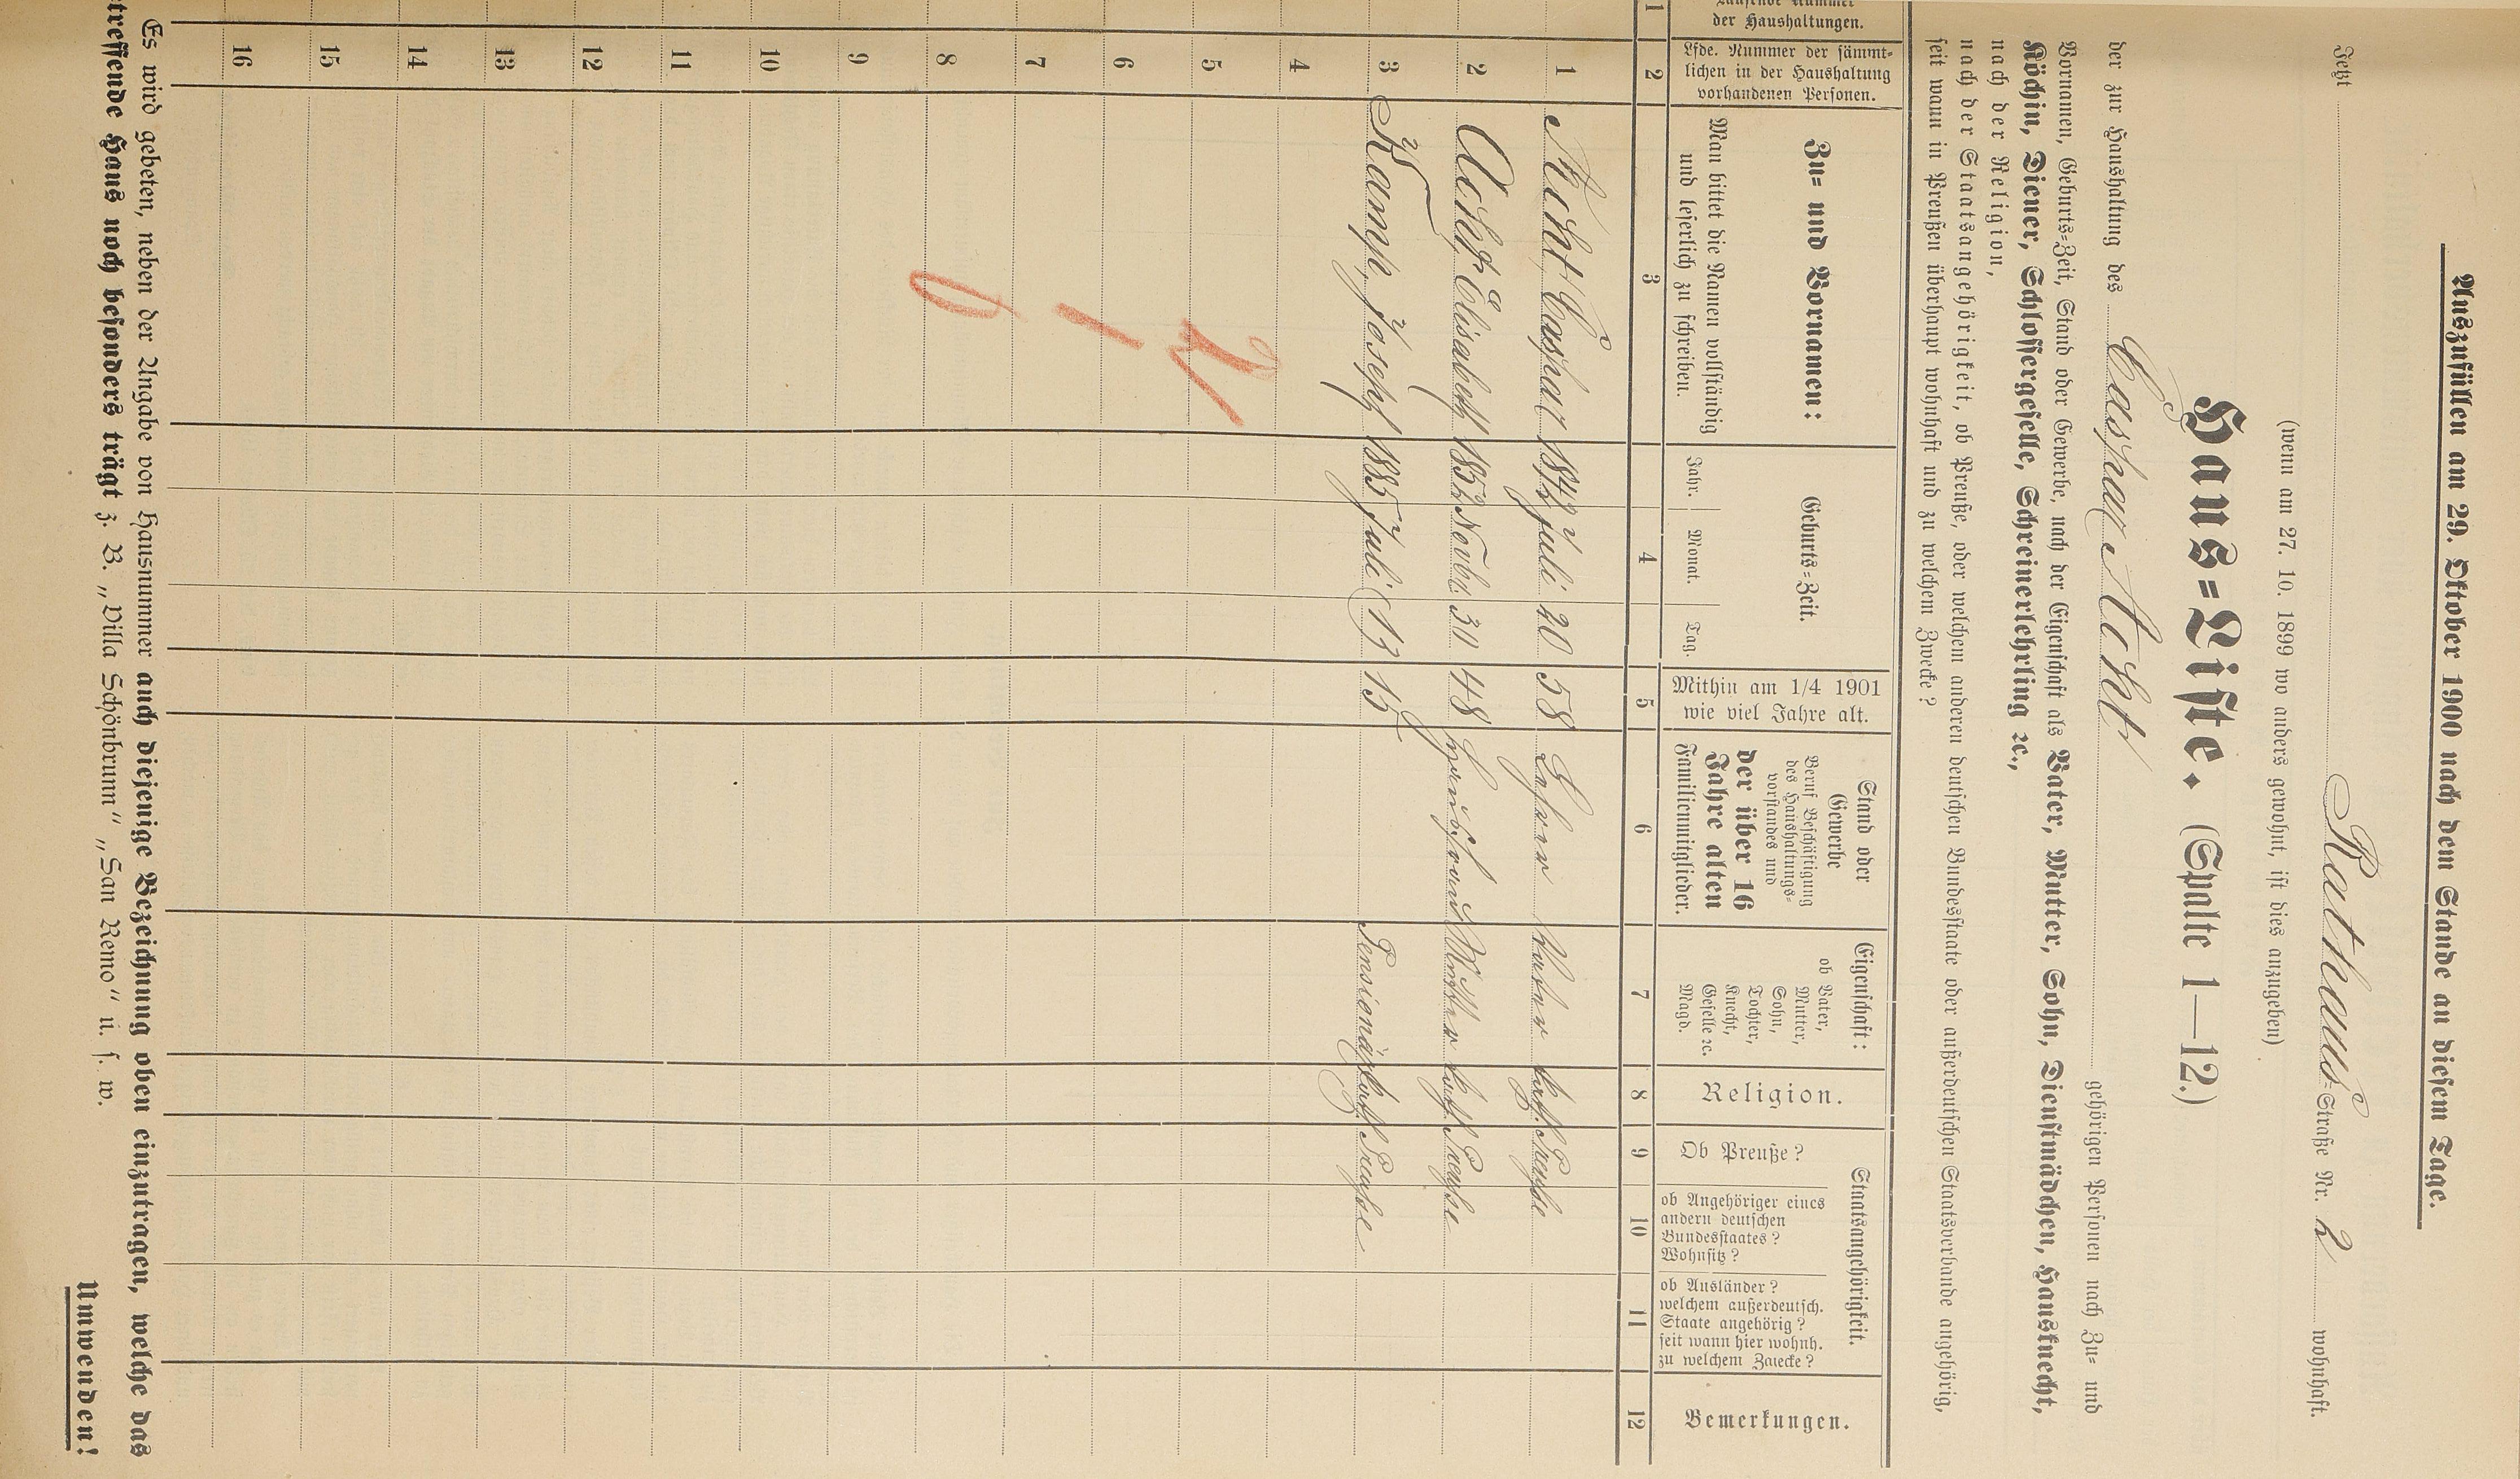 Auszufüllen am 29. Oktober 1900 nach dem Stande an diesem Tage.
Jetzt Rathaus=Straße Nr. 2 wohnhaft.
(wenn am 27. 10. 1899 wo anders gewohnt, ist dies anzugeben)
Haus=Liste. (Spalte 1—12.)
der zur Haushaltung des Caspar Acht gehörigen Personen nach Zu= und
Vornamen, Geburts=Zeit, Stand oder Gewerbe, nach der Eigenschaft als Vater, Mutter, Sohn, Dienstmädchen, Hausknecht,
Köchin, Diener, Schlossergeselle, Schreinerlehrling ꝛc.,
nach der Religion,
nach der Staatsangehörigkeit, ob Preuße, oder welchem anderen deutschen Bundesstaate oder außerdeutschen Staatsverbande angehörig,
seit wann in Preußen überhaupt wohnhaft und zu welchem Zwecke?
Laufende Nummer
der Haushaltungen.
Lfde. Nummer der sämmt=
lichen in der Haushaltung
vorhandenen Personen.
Zu= und Vornamen:
Man bittet die Namen vollständig
und leserlich zu schreiben.
Geburts=Zeit.
Jahr. Monat. Tag.
Mithin am 1/4 1901
wie viel Jahre alt.
Stand oder
Gewerbe
Beruf Beschäftigung
des Haushaltungs=
vorstandes und
der über 16
Jahre alten
Familienmitglieder.
Eigenschaft:
ob
Vater,
Mutter,
Sohn,
Tochter,
Knecht,
Geselle ꝛc.
Magd.
Religion.
Staatsangehörigkeit.
Ob Preuße?
ob Angehöriger eines
andern deutschen
Bundesstaates?
Wohnsitz?
ob Ausländer?
welchem außerdeutsch.
Staate angehörig?
seit wann hier wohnh.
zu welchem Zwecke?
Bemerkungen.
1 2 3 4 5 6 7 8 9 10 11 12
1 Acht, Caspar 1842 Juli 20 58 Lehrer Vater kath. Preuße
2 Acht, Elisabeth 1852 Novbr. 30 48 Hausfrau Mutter kath. Preuße
3 Kamp, Joseph 1885 Juli 13 15 Pensionär kath. Preuße
4
5
6
7
8
9
10
11
12
13
14
15
16
Es wird gebeten, neben der Angabe von Hausnummer auch diejenige Bezeichnung oben einzutragen, welche das
treffende Haus noch besonders trägt z. B. „Villa Schönbrunn“ „San Remo“ u. s. w.
Umwenden!